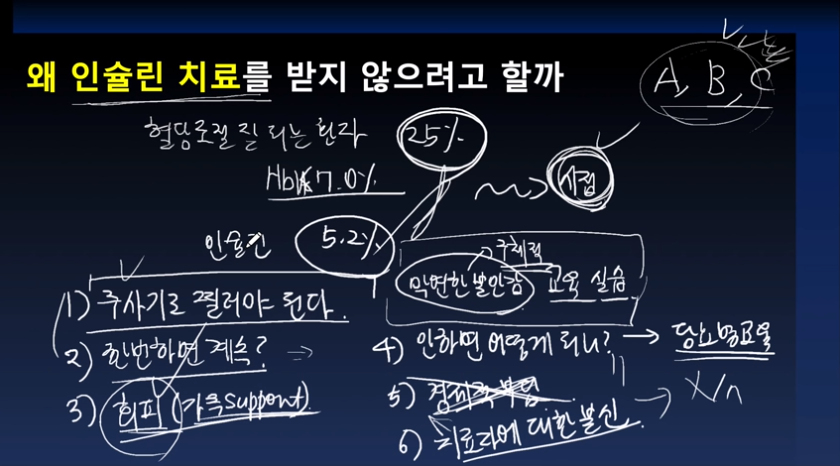 왜 인슐린 치료를 받지 않으려고 할까
A, B, C
혈당조절 잘 되는 환자 25%
7.0%
시점
인슐린 5.2%
구체적
막연한 불안감 교육 실습
1) 주사기로 찔러야 된다.
2) 한번하면 계속?
3) 회피 (가족 support)
4) 안하면 어떻게 되니? → 당뇨병교육
5) 경제적 부담
6) 치료자에 대한 불신 → X/n